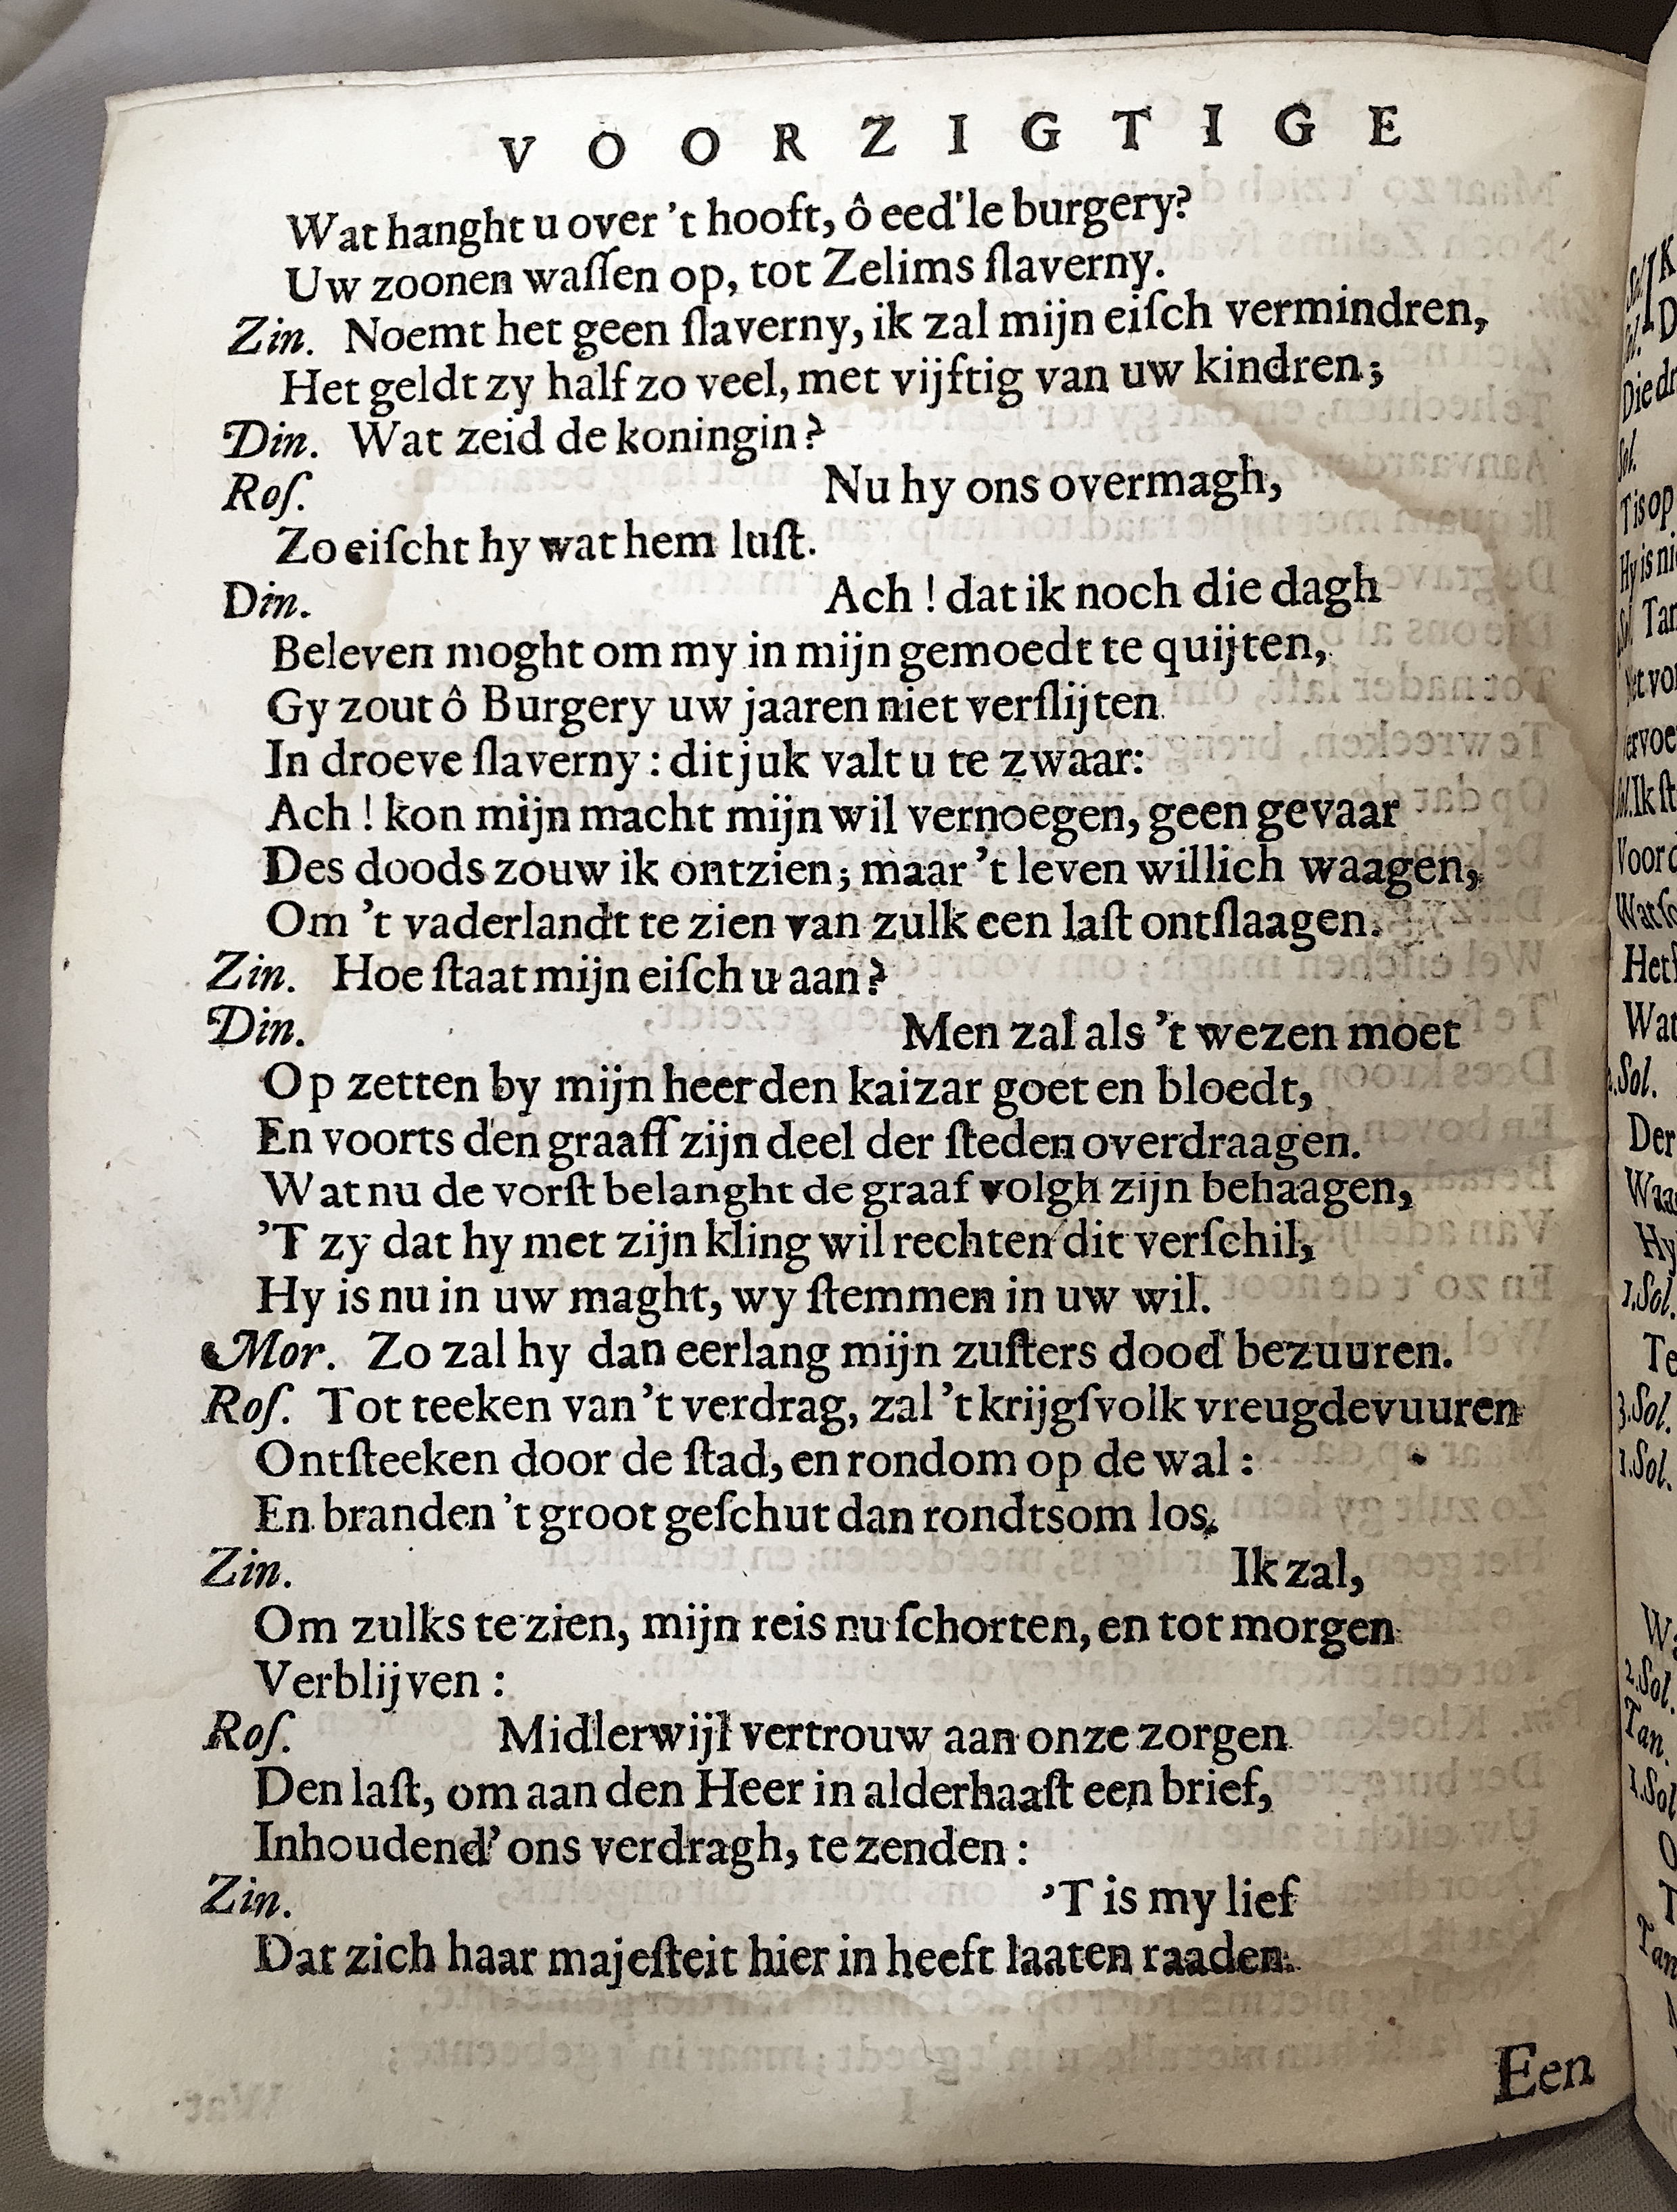 VOORZIGTIGE
Wat hanght u over 't hooft, ô eed'le burgery?
Uw zoonen waſſen op, tot Zelims ſlaverny.
Zin. Noemt het geen ſlaverny, ik zal mijn eiſch vermindren,
Het geldt zy half zo veel, met vijftig van uw kindren;
Din. Wat zeid de koningin?
Roſ. Nu hy ons overmagh,
Zo eiſcht hy wat hem luſt.
Din. Ach! dat ik noch die dagh
Beleven moght om my in mijn gemoedt te quijten,
Gy zout ô Burgery uw jaaren niet verſlijten
In droeve ſlaverny: dit juk valt u te zwaar:
Ach! kon mijn macht mijn wil vernoegen, geen gevaar
Des doods zouw ik ontzien; maar 't leven willich waagen,
Om 't vaderlandt te zien van zulk een laſt ontſlaagen.
Zin. Hoe ſtaat mijn eiſch u aan?
Din. Men zal als 't wezen moet
Op zetten by mijn heer den kaizar goet en bloedt,
En voorts den graaff zijn deel der ſteden overdraagen.
Wat nu de vorſt belanght de graaf volgh zijn behaagen,
'T zy dat hy met zijn kling wil rechten dit verſchil,
Hy is nu in uw maght, wy ſtemmen in uw wil.
Mor. Zo zal hy dan eerlang mijn zuſters dood bezuuren.
Roſ. Tot teeken van 't verdrag, zal 't krijgſvolk vreugdevuuren
Ontſteeken door de ſtad, en rondom op de wal:
En branden 't groot geſchut dan rondtsom los.
Zin. Ik zal,
Om zulks te zien, mijn reis nu ſchorten, en tot morgen
Verblijven:
Roſ. Midlerwijl vertrouw aan onze zorgen
Den laſt, om aan den Heer in alderhaaſt een brief,
Inhoudend' ons verdragh, te zenden:
Zin. 'T is my lief
Dat zich haar majeſteit hier in heeft laaten raaden:
Een